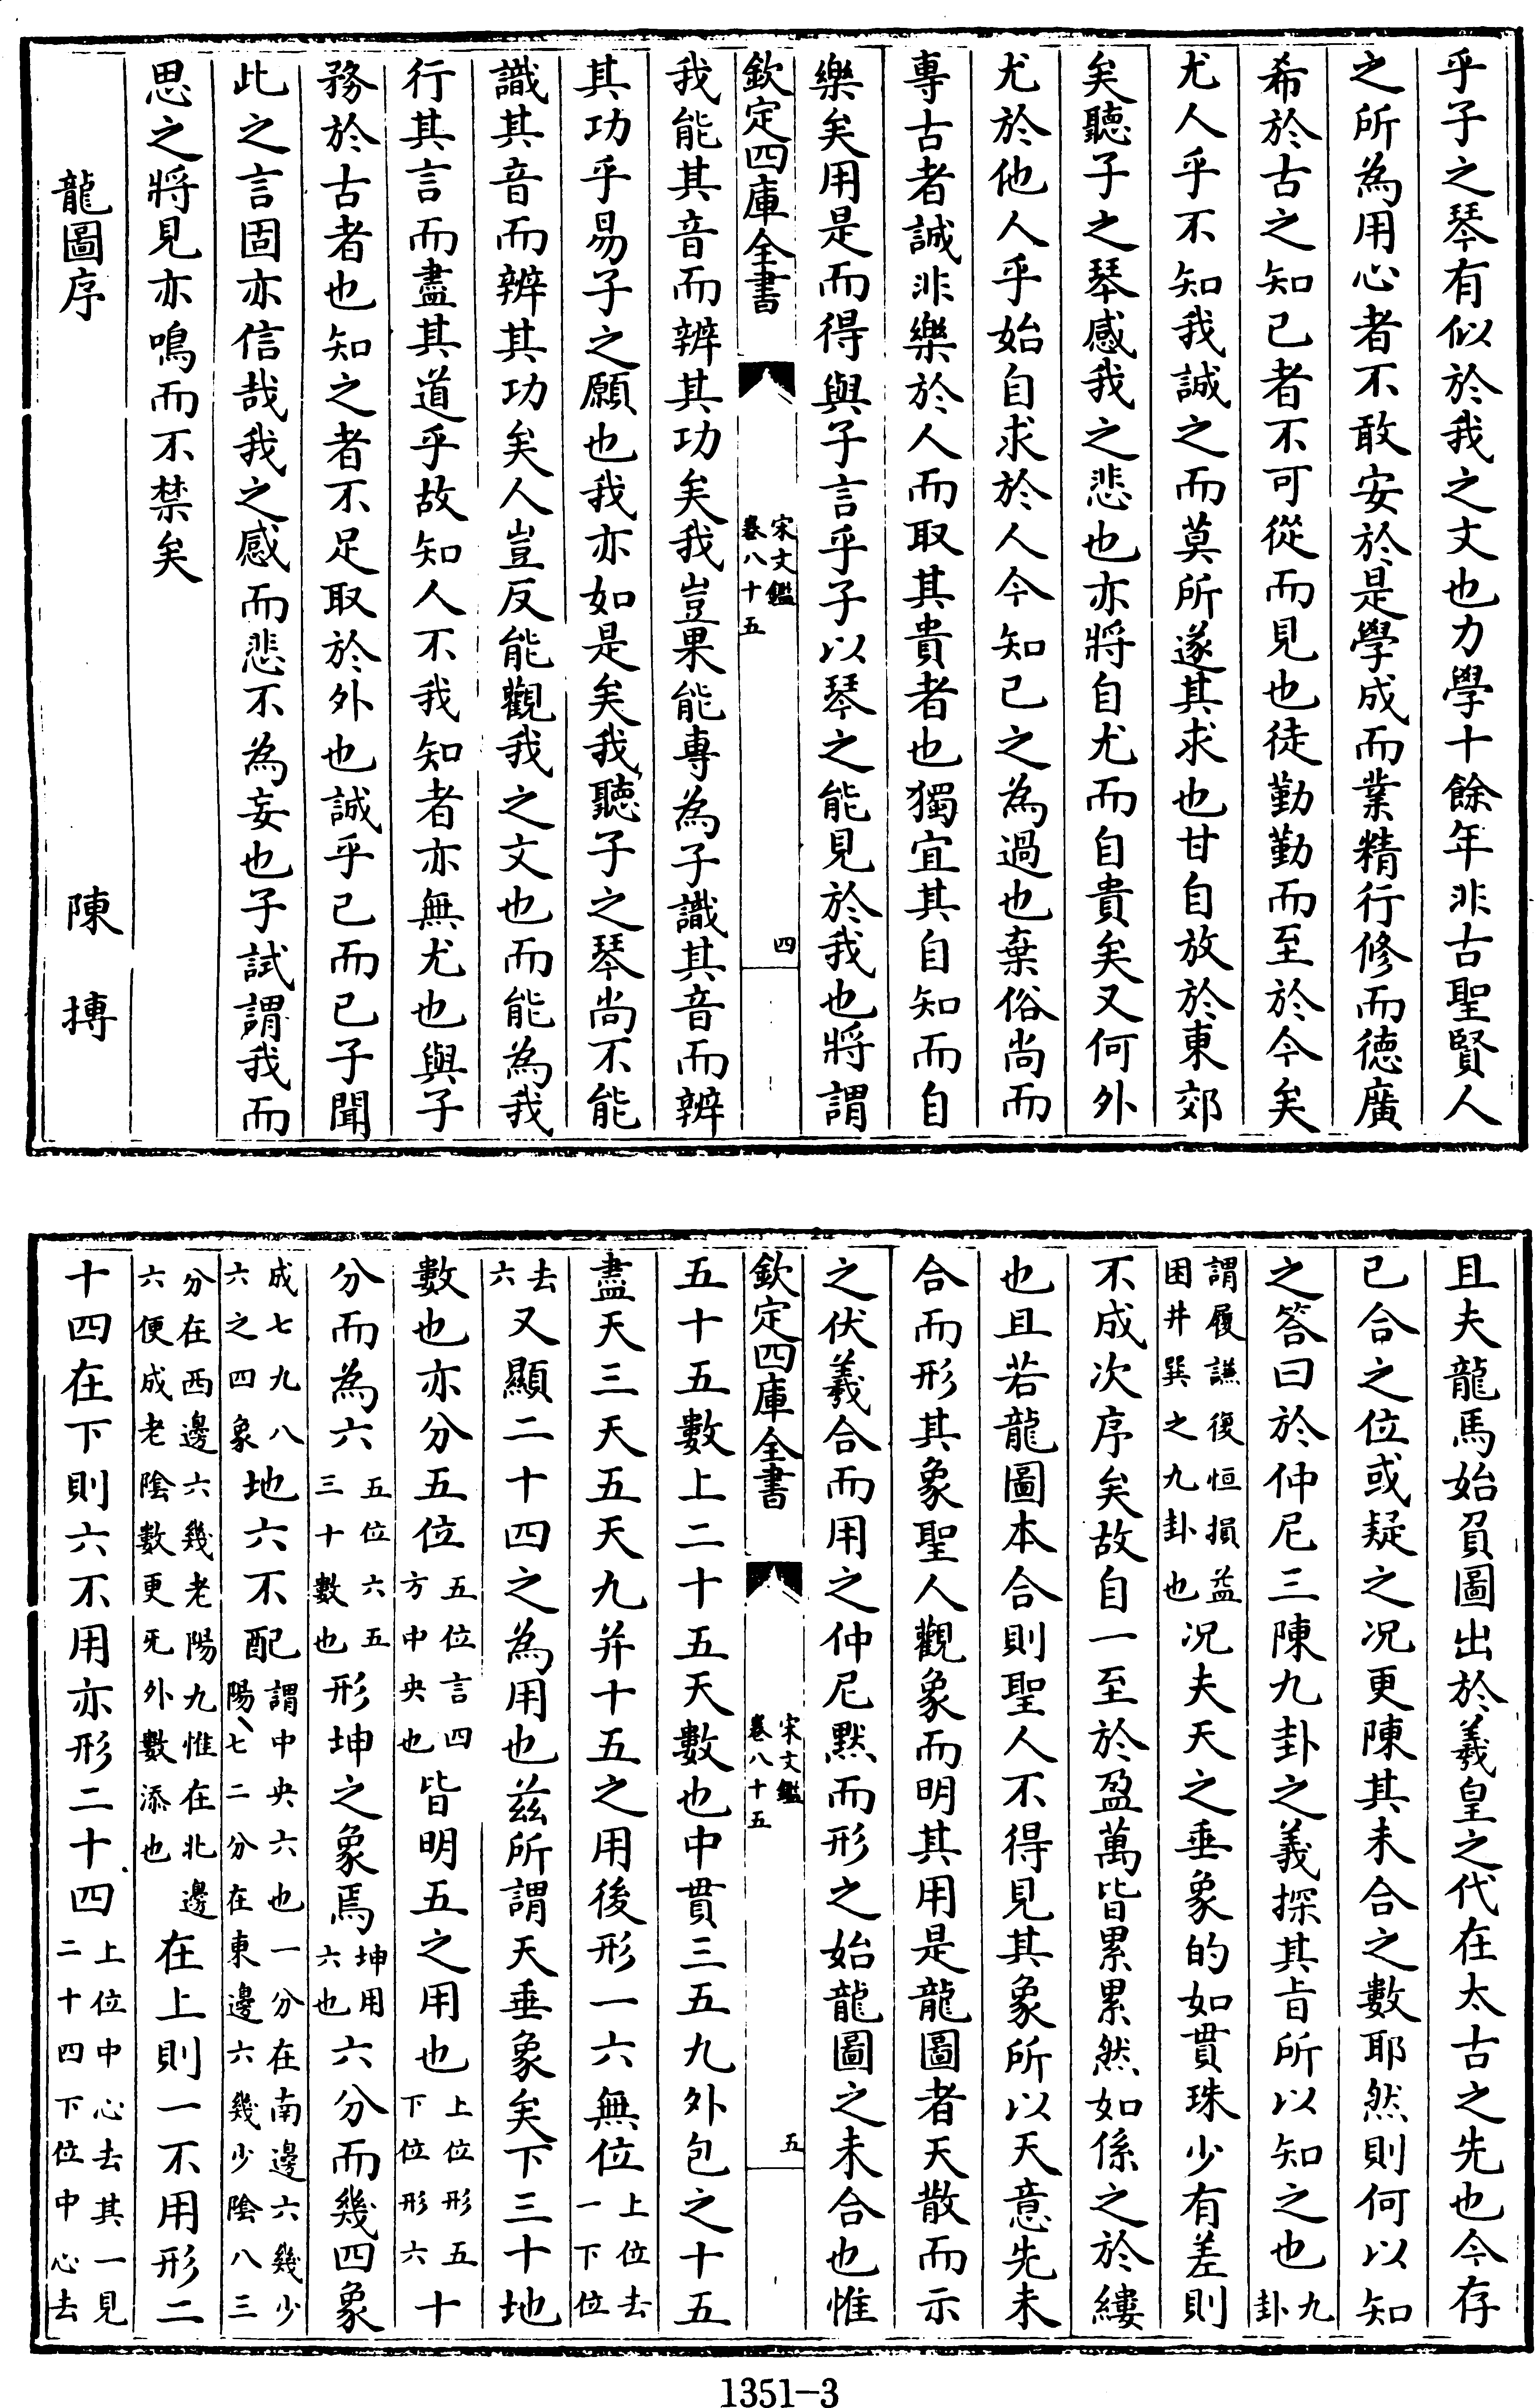 乎子之琴有似於我之文也力學十餘年非古聖賢人
之所為用心者不敢安於是學成而業精行修而德廣
希於古之知己者不可從而見也徒勤勤而至於今矣
尤人乎不知我誠之而莫所遂其求也甘自放於東郊
矣聽子之琴感我之悲也亦將自尤而自貴矣又何外
尤於他人乎始自求於人今知己之為過也棄俗尚而
專古者誠非樂於人而取其貴者也獨宜其自知而自
樂矣用是而得與子言乎子以琴之能見於我也將謂
欽定四庫全書
宋文鑑
卷八十五
四
我能其音而辨其功矣我豈果能專為子識其音而辨
其功乎易子之願也我亦如是矣我聽子之琴尚不能
識其音而辨其功矣人豈反能觀我之文也而能為我
行其言而盡其道乎故知人不我知者亦無尤也與子
務於古者也知之者不足取於外也誠乎已而已子聞
此之言固亦信哉我之感而悲不為妄也子試謂我而
思之將見亦鳴而不禁矣
龍圖序 陳摶
且夫龍馬始負圖出於羲皇之代在太古之先也今存
已合之位或疑之况更陳其未合之數耶然則何以知
之答曰於仲尼三陳九卦之義探其旨所以知之也九卦
謂履謙復恒損益困井巽之九卦也况夫天之垂象的如貫珠少有差則
不成次序矣故自一至於盈萬皆累累然如係之於縷
也且若龍圖本合則聖人不得見其象所以天意先未
合而形其象聖人觀象而明其用是龍圖者天散而示
之伏羲合而用之仲尼默而形之始龍圖之未合也惟
欽定四庫全書
宋文鑑
卷八十五
五
五十五數上二十五天數也中貫三五九外包之十五
盡天三天五天九并十五之用後形一六無位上位去一下位
去六又顯二十四之為用也兹所謂天垂象矣下三十地
數也亦分五位五位言四方中央也皆明五之用也上位形五下位形六十
分而為六五位六五三十數也形坤之象焉坤用六也六分而幾四象
成七九八六之四象地六不配謂中央六也一分在南邊六幾少陽七二分在東邊六幾少陰八三
分在西邊六幾老陽九惟在北邊六便成老陰數更旡外數添也在上則一不用形二
十四在下則六不用亦形二十四上位中心去其一見二十四下位中心去
1351-3